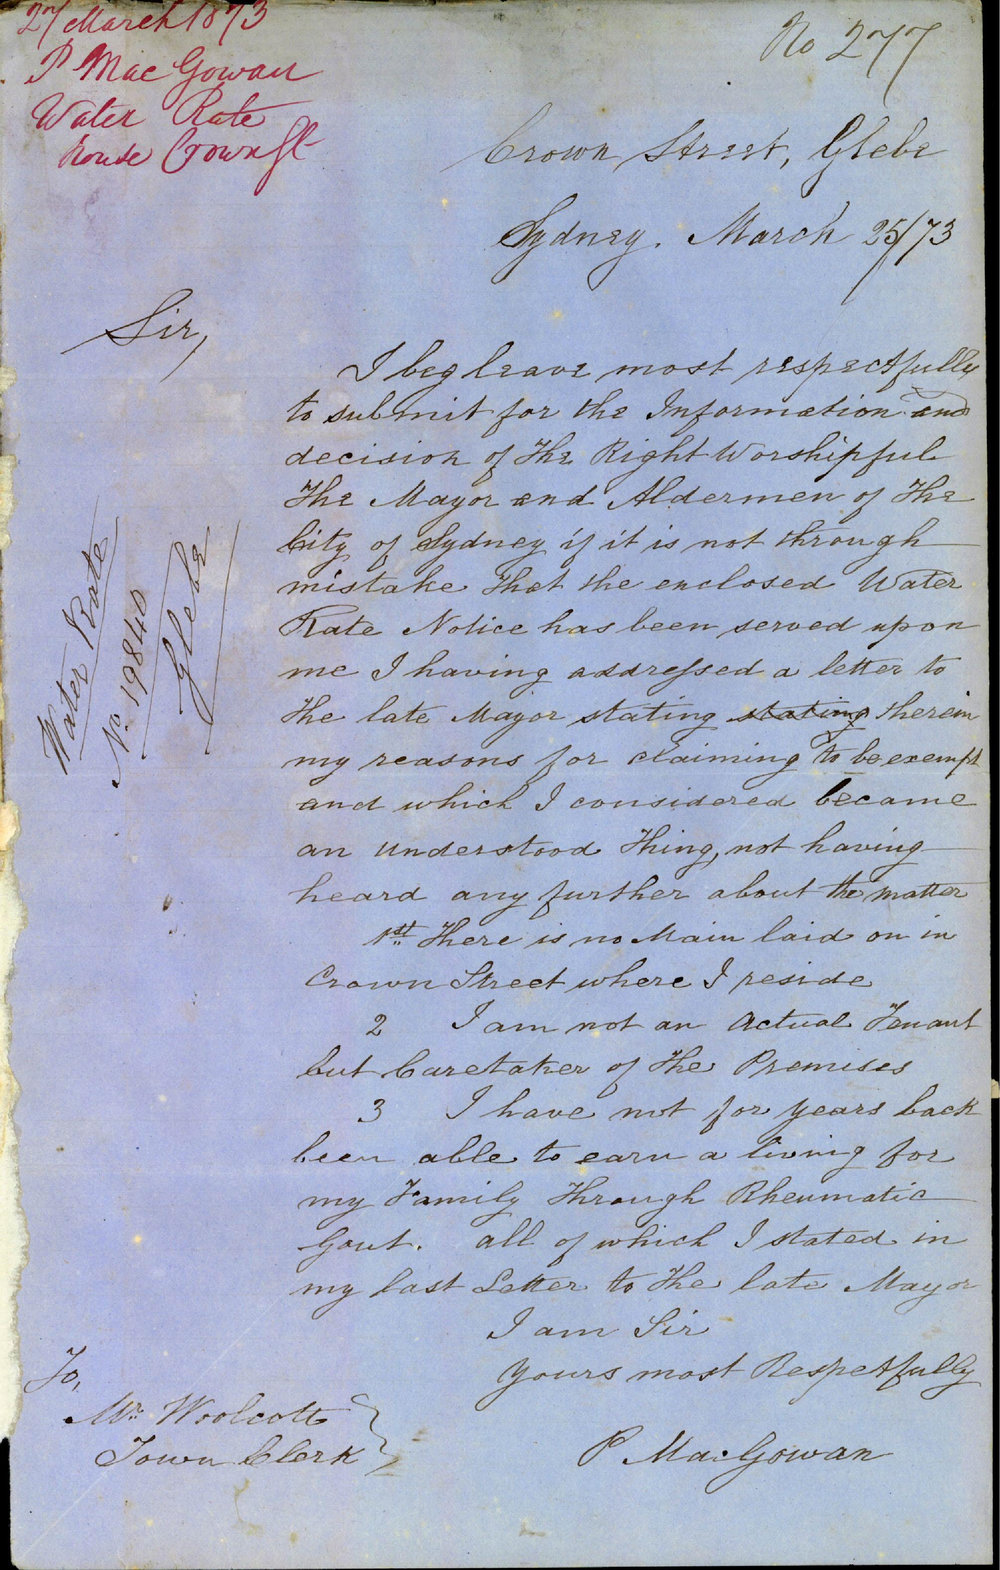 27 March 1873
P MacGowan
Water Rate
house Crown St
No 277
Crown Street, Glebe
Sydney. March 25/73
Sir,
I beg leave most respectfully
to submit for the Information and
decision of The Right Worshipful
The Mayor and Aldermen of The
City of Sydney if it is not through
mistake that the enclosed Water
Rate Notice has been served upon
me I having addressed a letter to
the late Mayor stating stating therein
my reasons for claiming to be exempt
and which I considered became
an understood Thing, not having
heard any further about the matter
1st There is no Main laid on in
Crown Street where I reside
2 I am not an Actual Tenant
but Caretaker of The Premises
3 I have not for years back
been able to earn a living for
my Family Through Rheumatic
Gout. all of which I stated in
my last Letter to The late Mayor
I am Sir
yours most Respectfully
P MacGowan
To,
Mr Woolcott
Town Clerk
Water Rate
No. 19840
Glebe